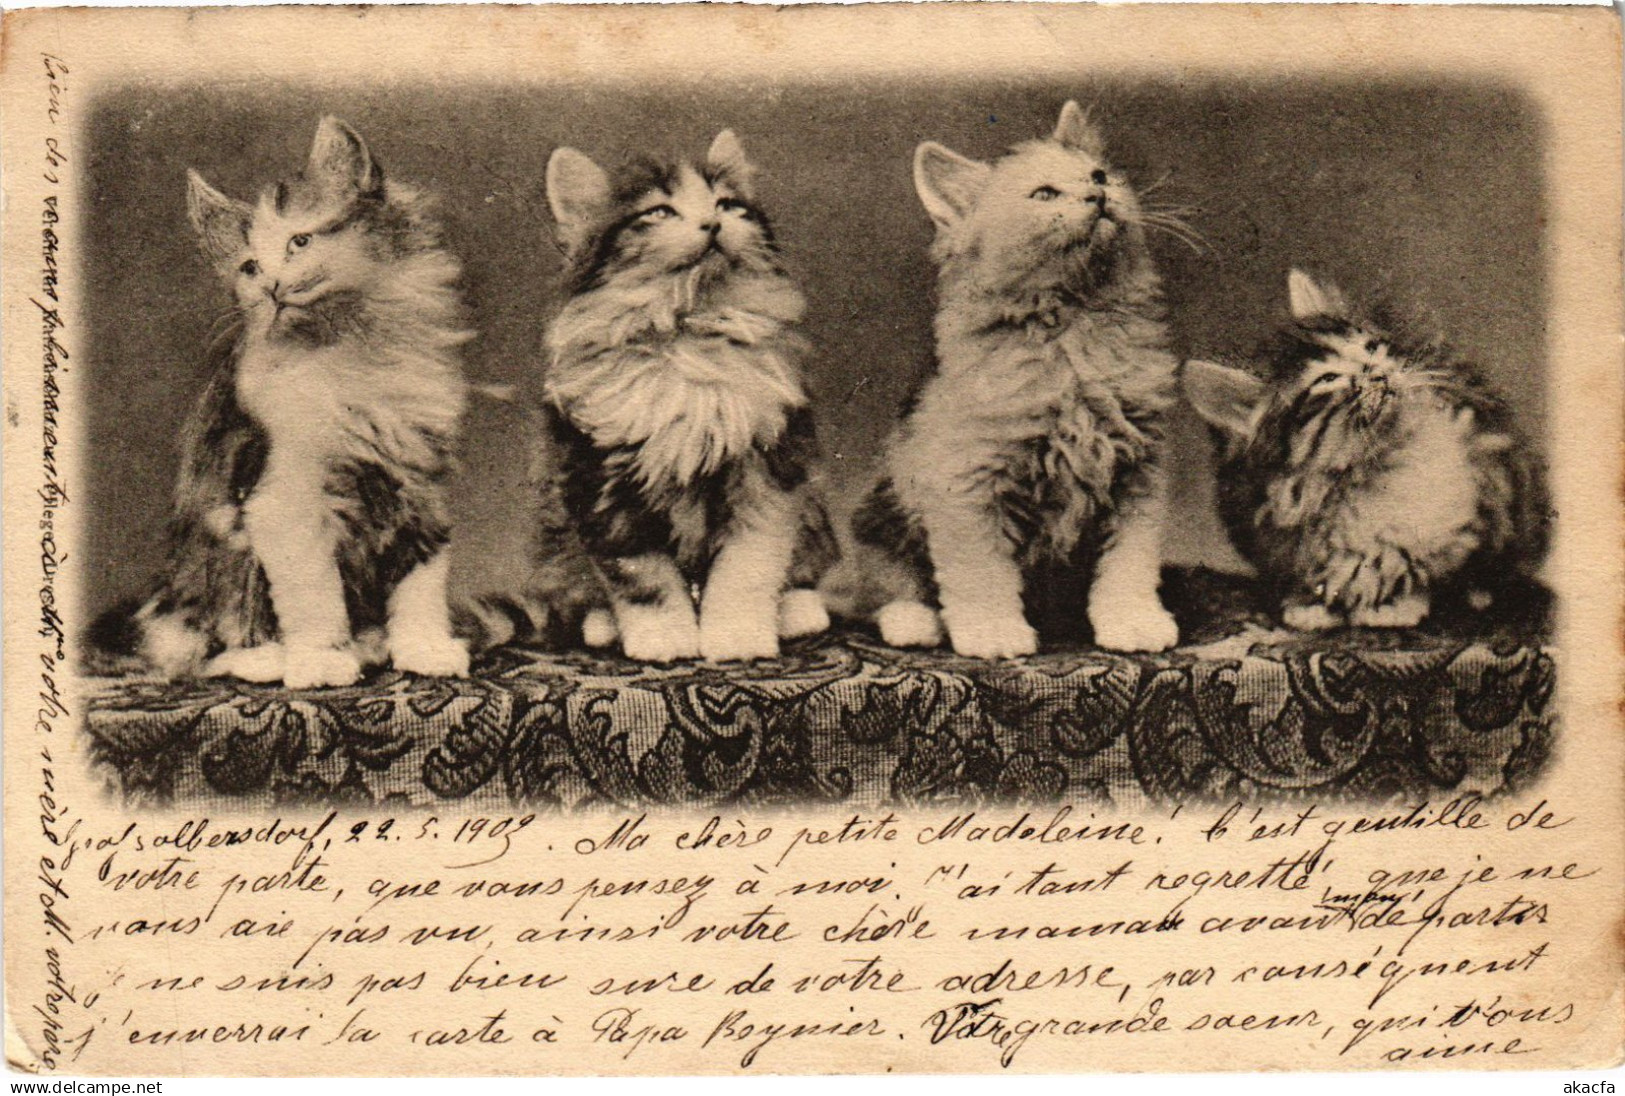 olbersdorf, 22. 5. 1903. Ma chère petite Madeleine! C'est gentille de
votre parte, que vous pensez à moi. J'ai tant regretté, que je ne
vous aie pas vu, ainsi votre chère maman avant de partir
ne suis pas bien sure de votre adresse, par conséquent
j'enverrai la carte à Papa Reynier. Votre grande soeur, qui vous
aime
Bien des à votre mère et M. votre père
www.delcampe.net
akacfa